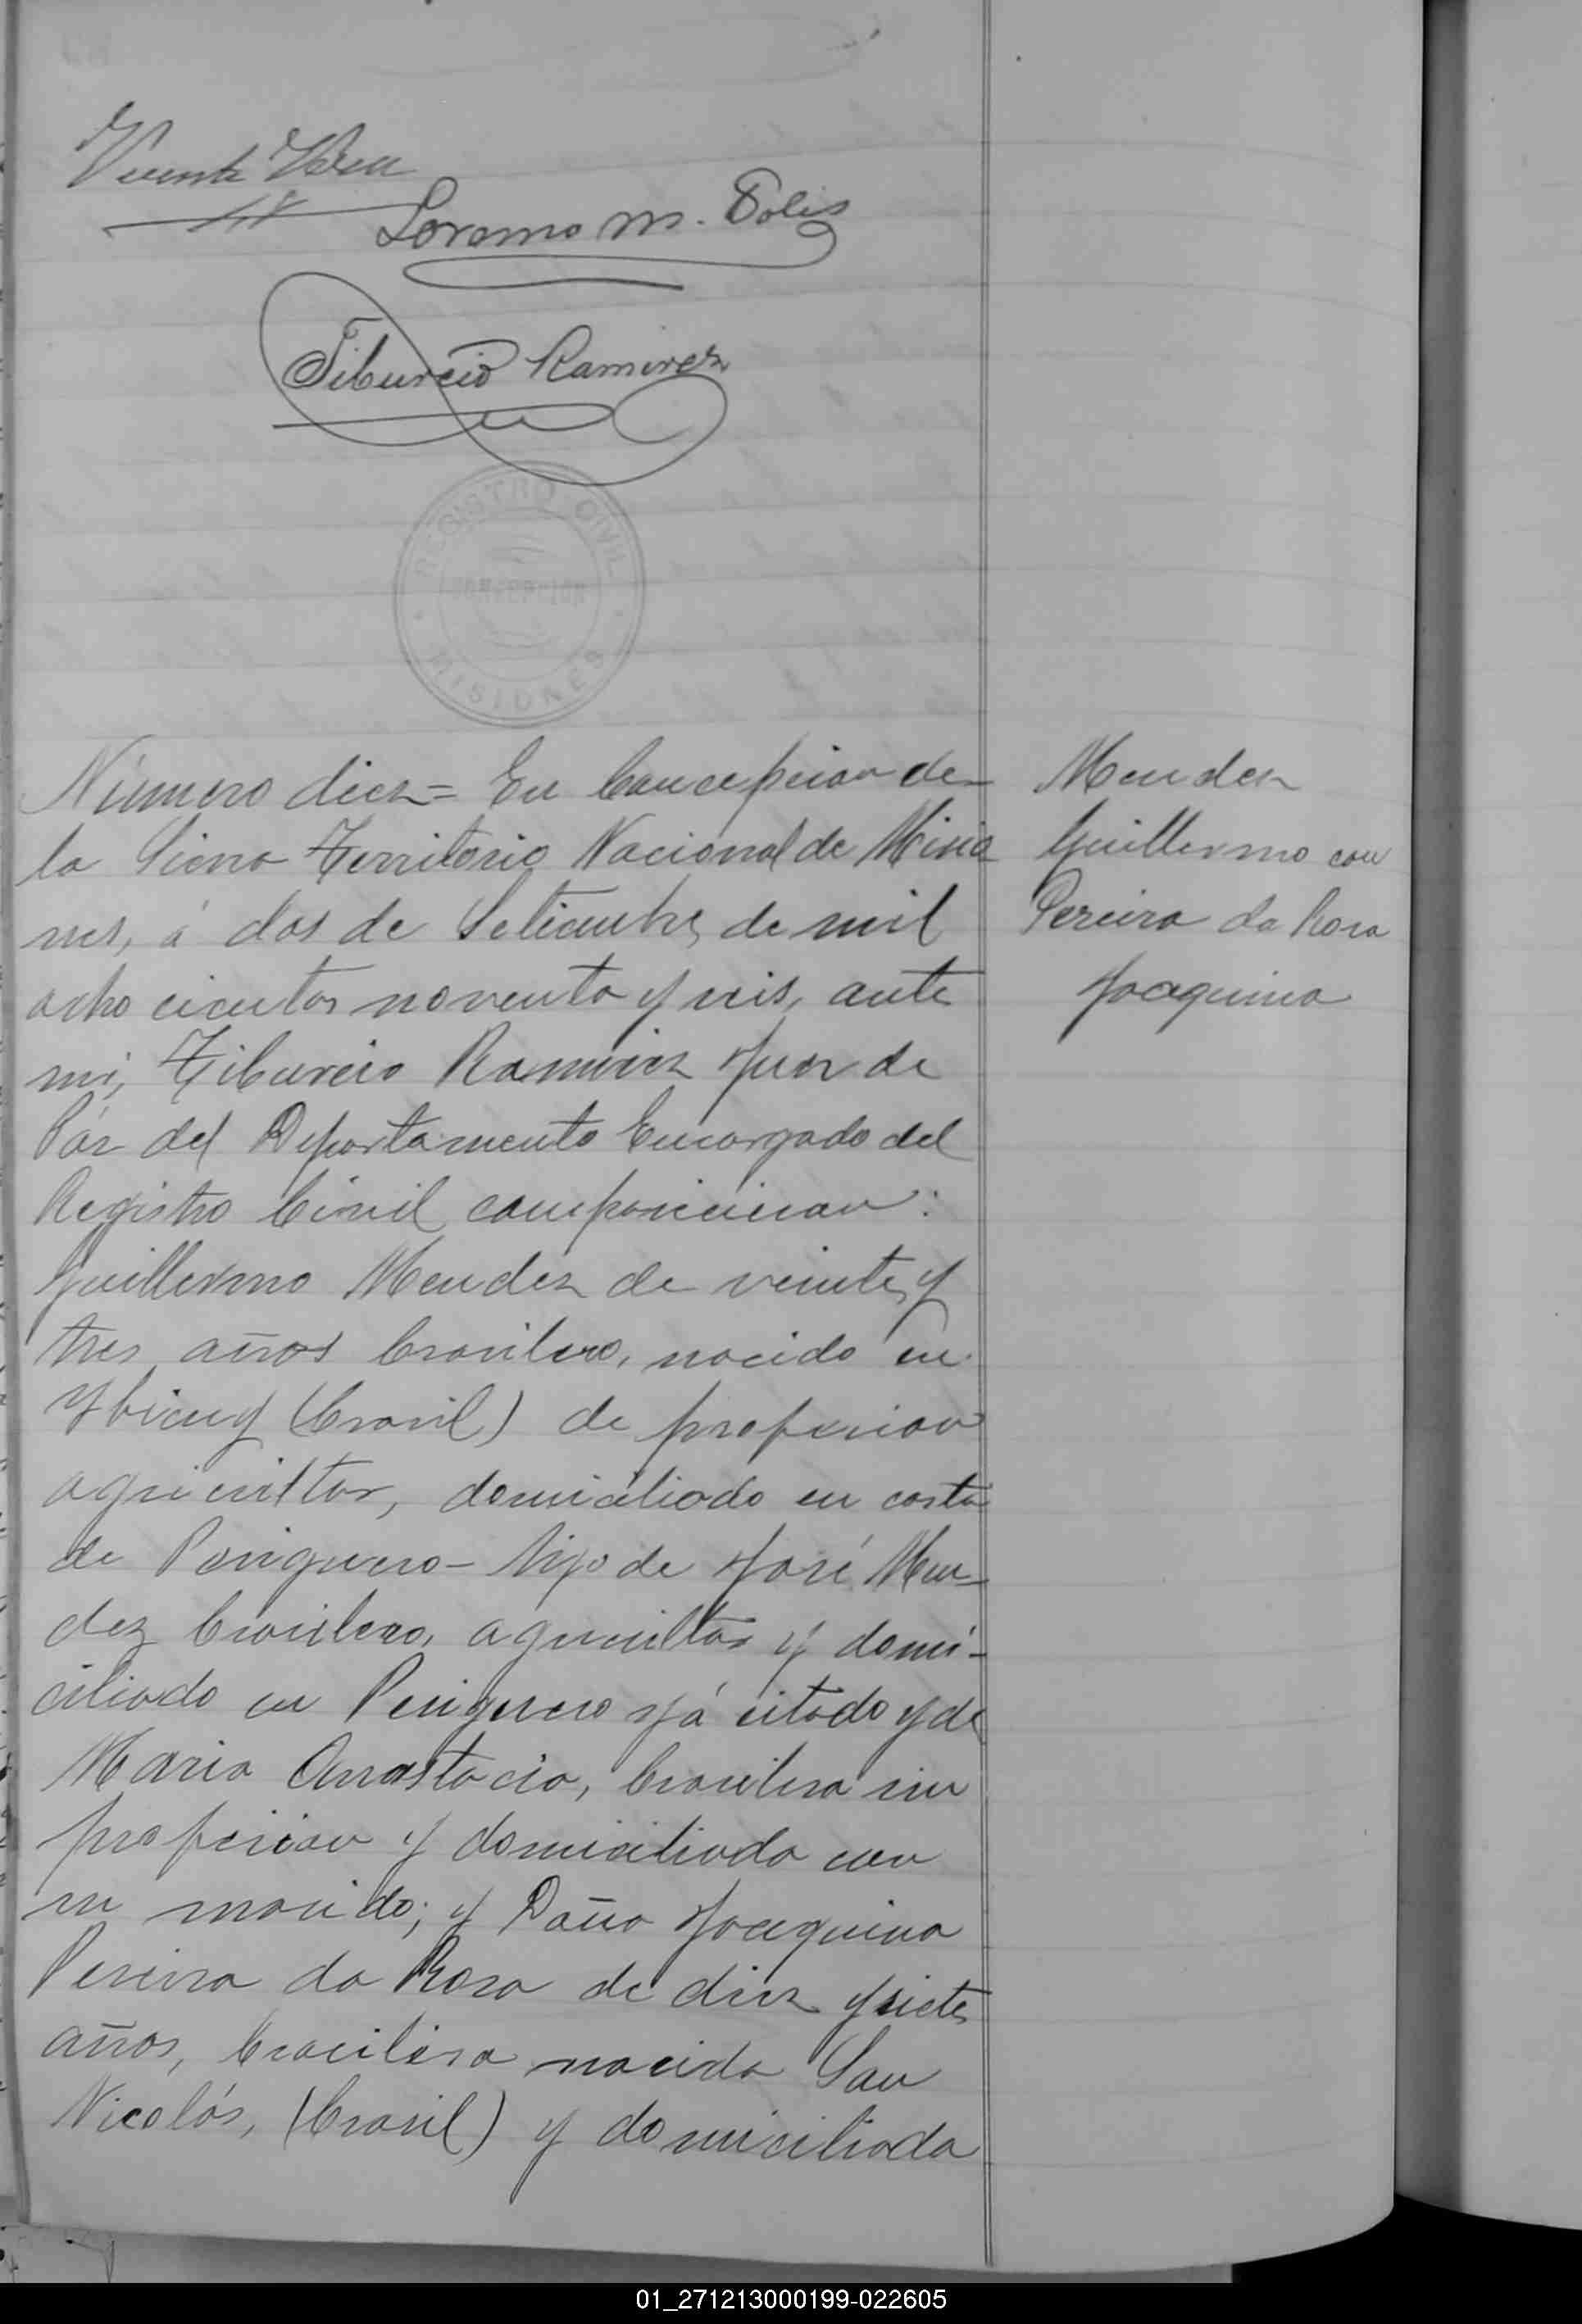 Vicente
Lorenso M. Solis
Tiburcio Ramirez
REGISTRO CIVIL
CONCEPCION
MISIONES
Número diez = En Concepcion de
la Sierra Territorio Nacional de Misio
nes, á dos de Setiembre de mil
ocho cientos noventa y seis, ante
mi, Tiburcio Ramirez Juez de
Páz del Departamento Encargado del
Registro Civil comparecieron:
Guillermo Mendez de veinte y
tres años brasilero, nacido en
Ybicuy (brasil) de profesion
agricultor, domiciliado en costa
de Persiguero - hijo de José Men=
dez brasilero, agricultor y domi-
ciliado en Persiguero yá citado y de
Maria Anastacia, brasilera sin
profesion y domiciliada con
su marido; y Doña Joaquina
Pereira da Rosa de diez y siete
años, bracilera nacida San
Nicolás, (brasil) y domiciliada
Mendez
Guillermo con
Pereira da Rosa
Joaquina
01_271213000199-022605